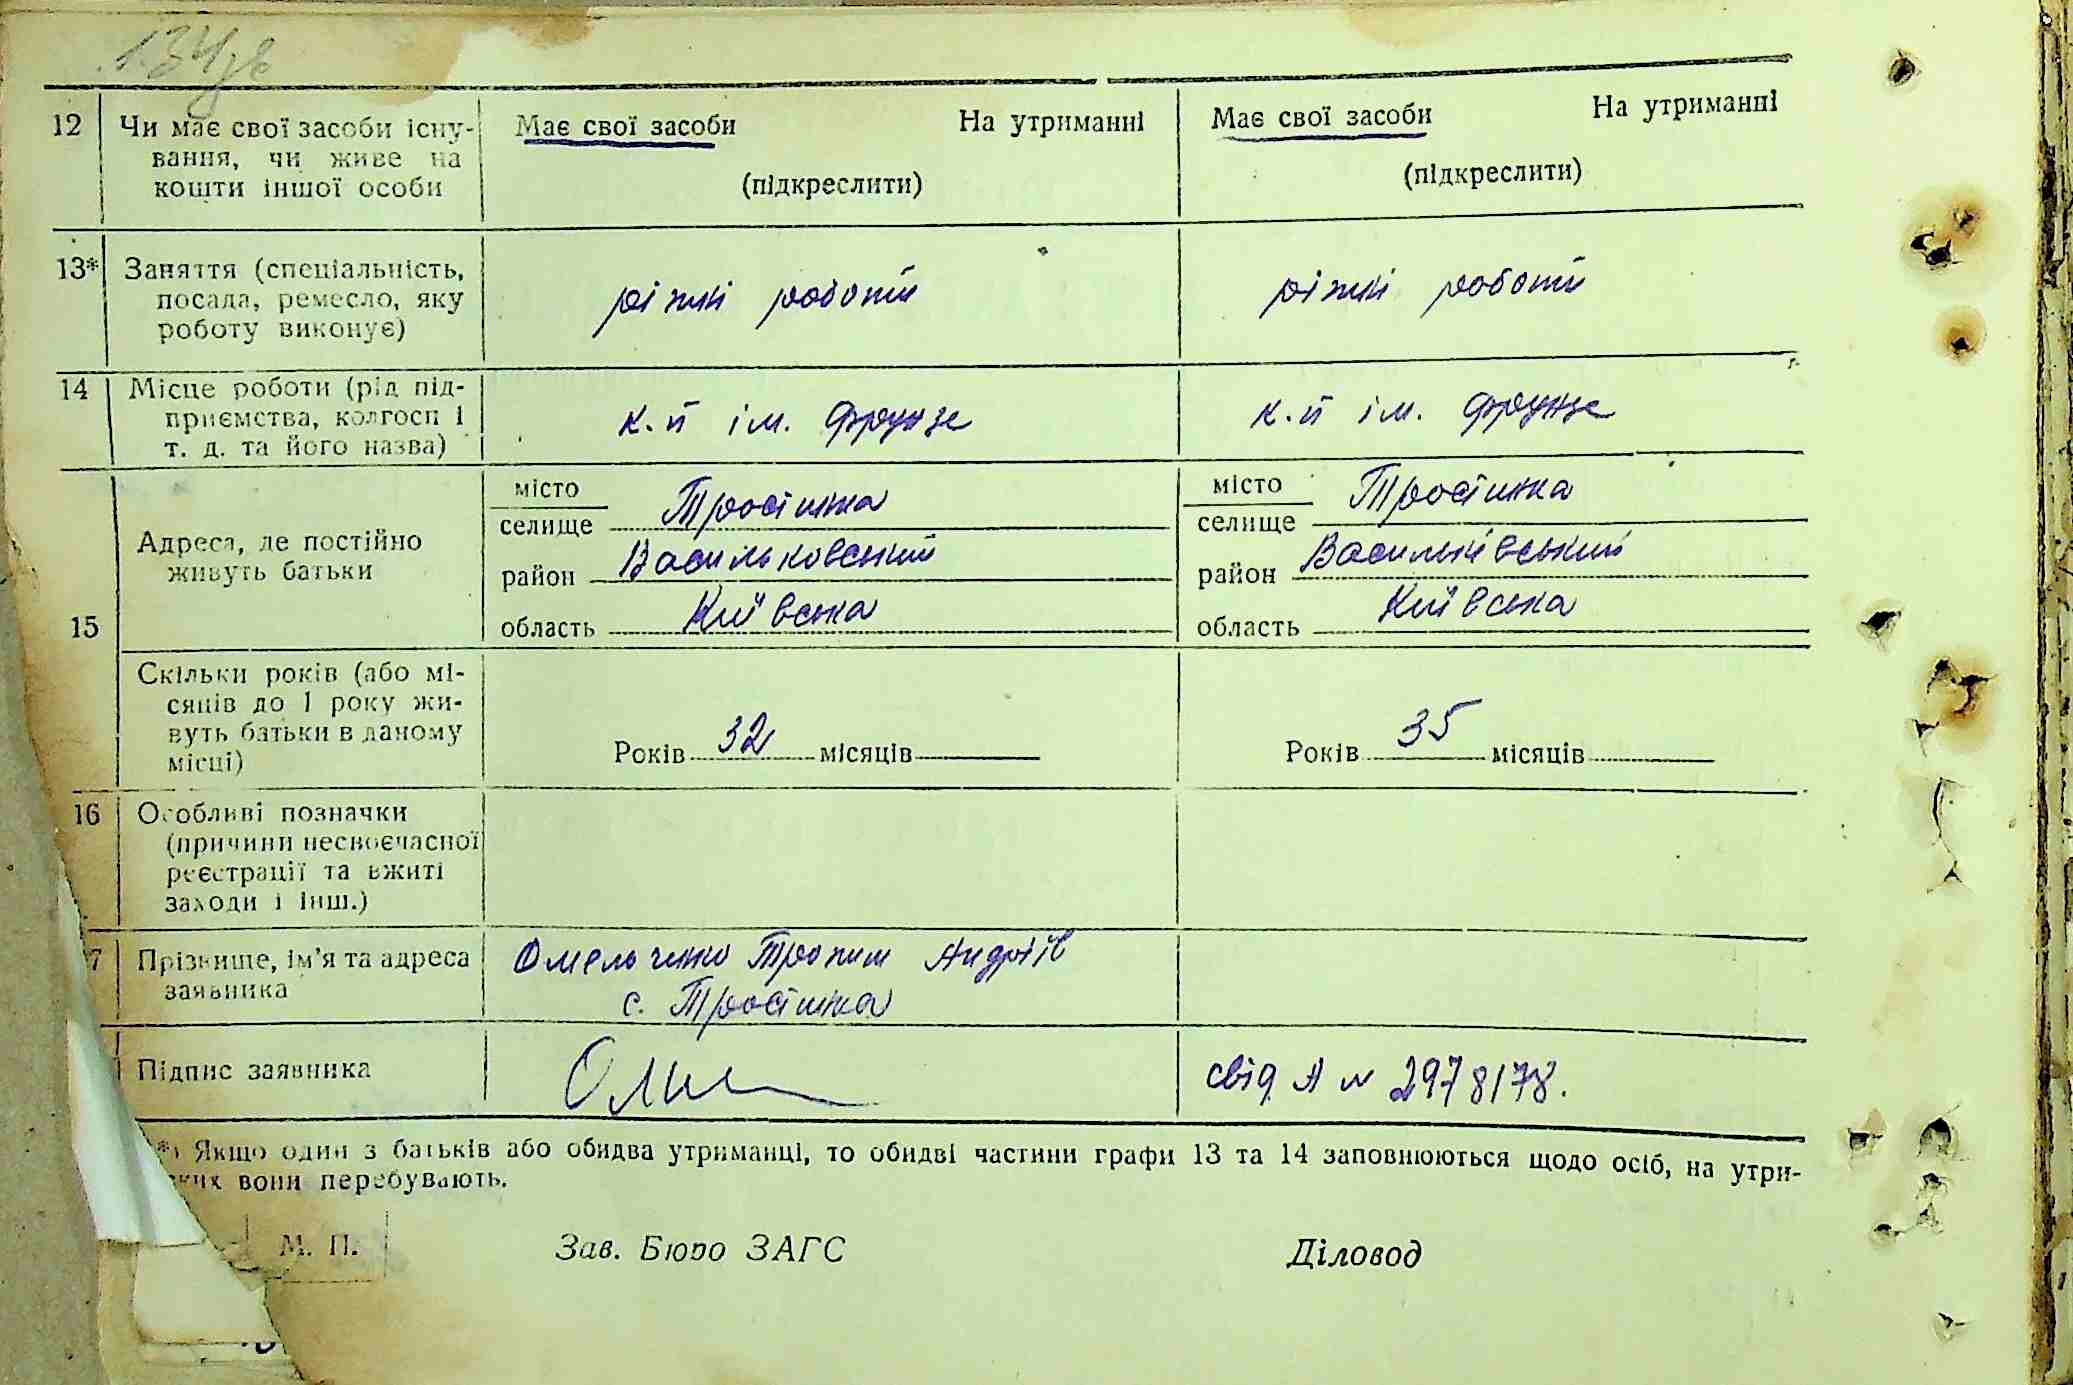 134зв
12 Чи має свої засоби існу-
вання, чи живе на
кошти іншої особи
Має свої засоби На утриманні
(підкреслити)
Має свої засоби На утриманні
(підкреслити)
13* Заняття (спеціальність,
посада, ремесло, яку
роботу виконує)
ріжні роботи
ріжні роботи
14 Місце роботи (рід під-
приємства, колгосп і
т. д. та його назва)
к.п ім. Фрунзе
к.п ім. Фрунзе
15
Адреса, де постійно
живуть батьки
місто
селище Тростинка
район Васильковський
область Київська
місто
селище Тростинка
район Васильківський
область Київська
Скільки років (або мі-
сяців до 1 року жи-
вуть батьки в даному
місці)
Років 32 місяців
Років 35 місяців
16 Особливі позначки
(причини несвоєчасної
реєстрації та вжиті
заходи і інш.)
7 Прізвище, ім'я та адреса
заявника
Омельченко Трохим Андріїв
с. Тростинка
Підпис заявника
Оме
свід А № 2978178.
*) Якщо один з батьків або обидва утриманці, то обидві частини графи 13 та 14 заповнюються щодо осіб, на утри-
яких вони перебувають.
М. П.
Зав. Бюро ЗАГС
Діловод